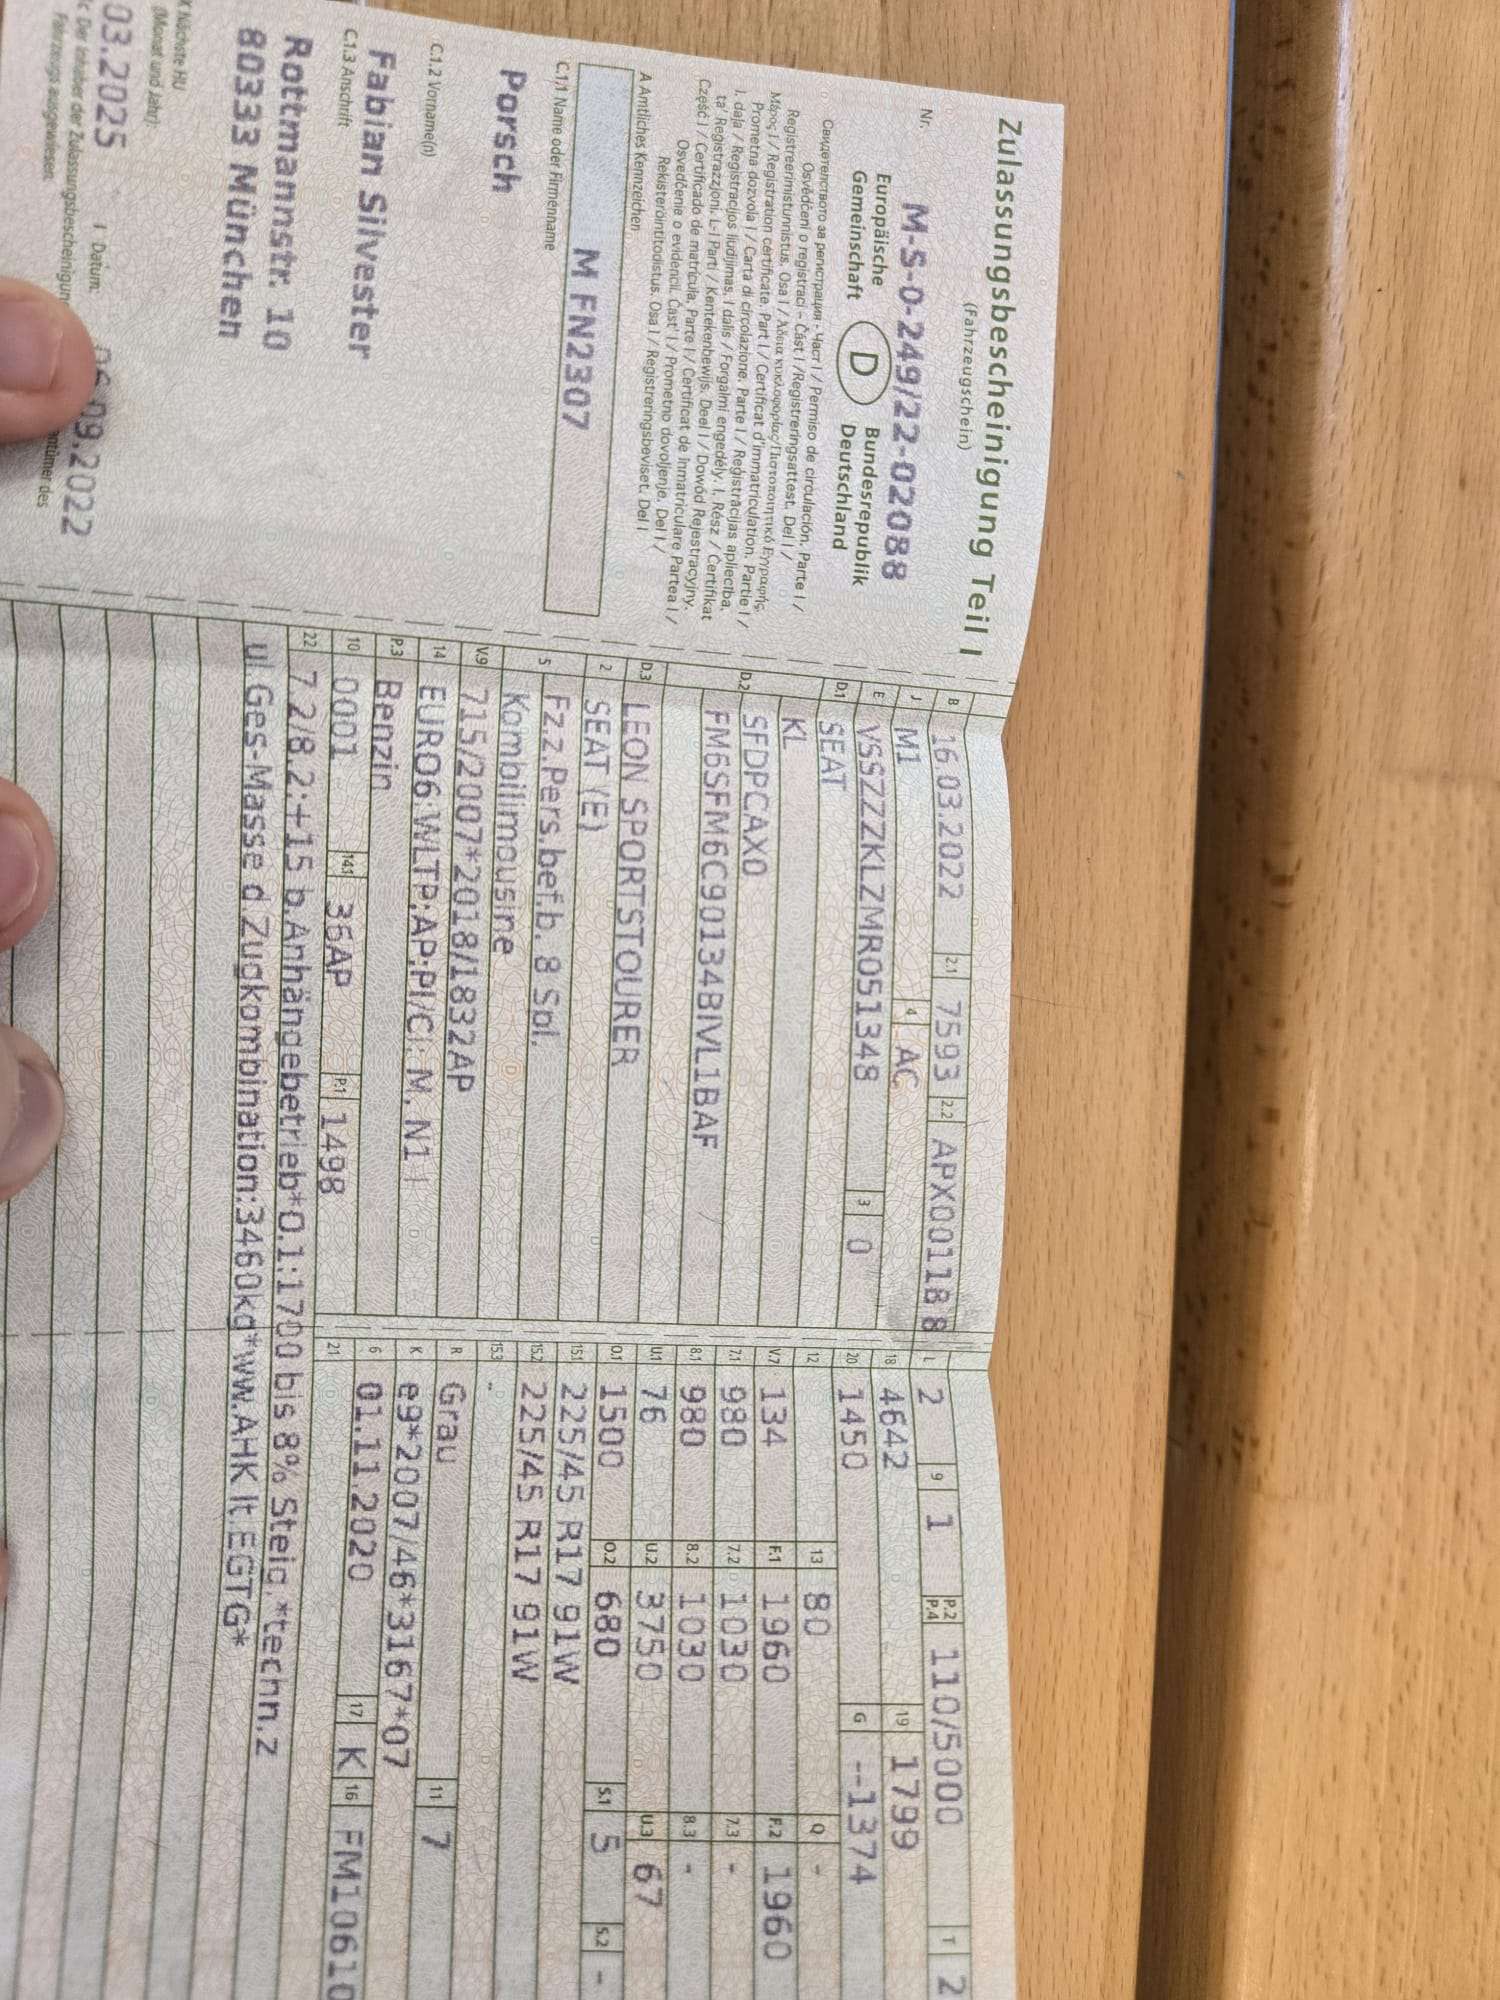 Zulassungsbescheinigung Teil I
(Fahrzeugschein)
Nr. M-S-0-249/22-02088
Europäische Gemeinschaft
D
Bundesrepublik Deutschland
Свидетелството за регистрация - Част I / Permiso de circulación. Parte I /
Osvědčení o registraci – Část I /Registreringsattest. Del I /
Registreerimistunnistus. Osa I / Άδεια κυκλοφορίας/Πιστοποιητικό Εγγραφής.
Μέρος I / Registration certificate. Part I / Certificat d'immatriculation. Partie I /
Prometna dozvola I / Carta di circolazione. Parte I / Reģistrācijas apliecība.
I. daļa / Registracijos liudijimas. I dalis / Forgalmi engedély. I. Rész / Ċertifikat
ta' Reġistrazzjoni. L-I Parti / Kentekenbewijs. Deel I / Dowód Rejestracyjny.
Część I / Certificado de matrícula. Parte I / Certificat de înmatriculare Partea I /
Osvedčenie o evidencii. Časť I / Prometno dovoljenje. Del I /
Rekisteröintitodistus. Osa I / Registreringsbeviset. Del I
A Amtliches Kennzeichen
M FN2307
C.1.1 Name oder Firmenname
Porsch
C.1.2 Vorname(n)
Fabian Silvester
C.1.3 Anschrift
Rottmannstr. 10
80333 München
Nächste HU
(Monat und Jahr):
03.2025
Datum:
09.2022
Der Inhaber der Zulassungsbescheinigung
Fahrzeugs ausgewiesen.
B 16.03.2022 2.1 7593 2.2 APX00118 8
J M1 4 AC
E VSSZZZKLZMR051348 3 0
D.1 SEAT
KL
D.2 SFDPCAX0
FM6SFM6C90134BIVL1BAF
D.3 LEON SPORTSTOURER
2 SEAT (E)
5 Fz.z.Pers.bef.b. 8 Spl.
Kombilimousine
V.9 715/2007*2018/1832AP
14 EURO6;WLTP;AP;PI/CI; M, N1 I
P.3 Benzin
10 0001 14.1 36AP P.1 1498
22 7.2/8.2:+15 b.Anhängebetrieb*O.1:1700 bis 8% Steig.*techn.z
ul.Ges-Masse d.Zugkombination:3460kg*ww.AHK lt.EGTG*
L 2 9 1 P.2 P.4 110/5000 T 2
18 4642 19 1799
20 1450 G --1374
12 13 80 Q -
V.7 134 F.1 1960 F.2 1960
7.1 980 7.2 1030 7.3 -
8.1 980 8.2 1030 8.3 -
U.1 76 U.2 3750 U.3 67
O.1 1500 O.2 680 S.1 5 S.2 -
15.1 225/45 R17 91W
15.2 225/45 R17 91W
15.3 -
R Grau 11 7
K e9*2007/46*3167*07
6 01.11.2020 17 K 16 FM10610
21